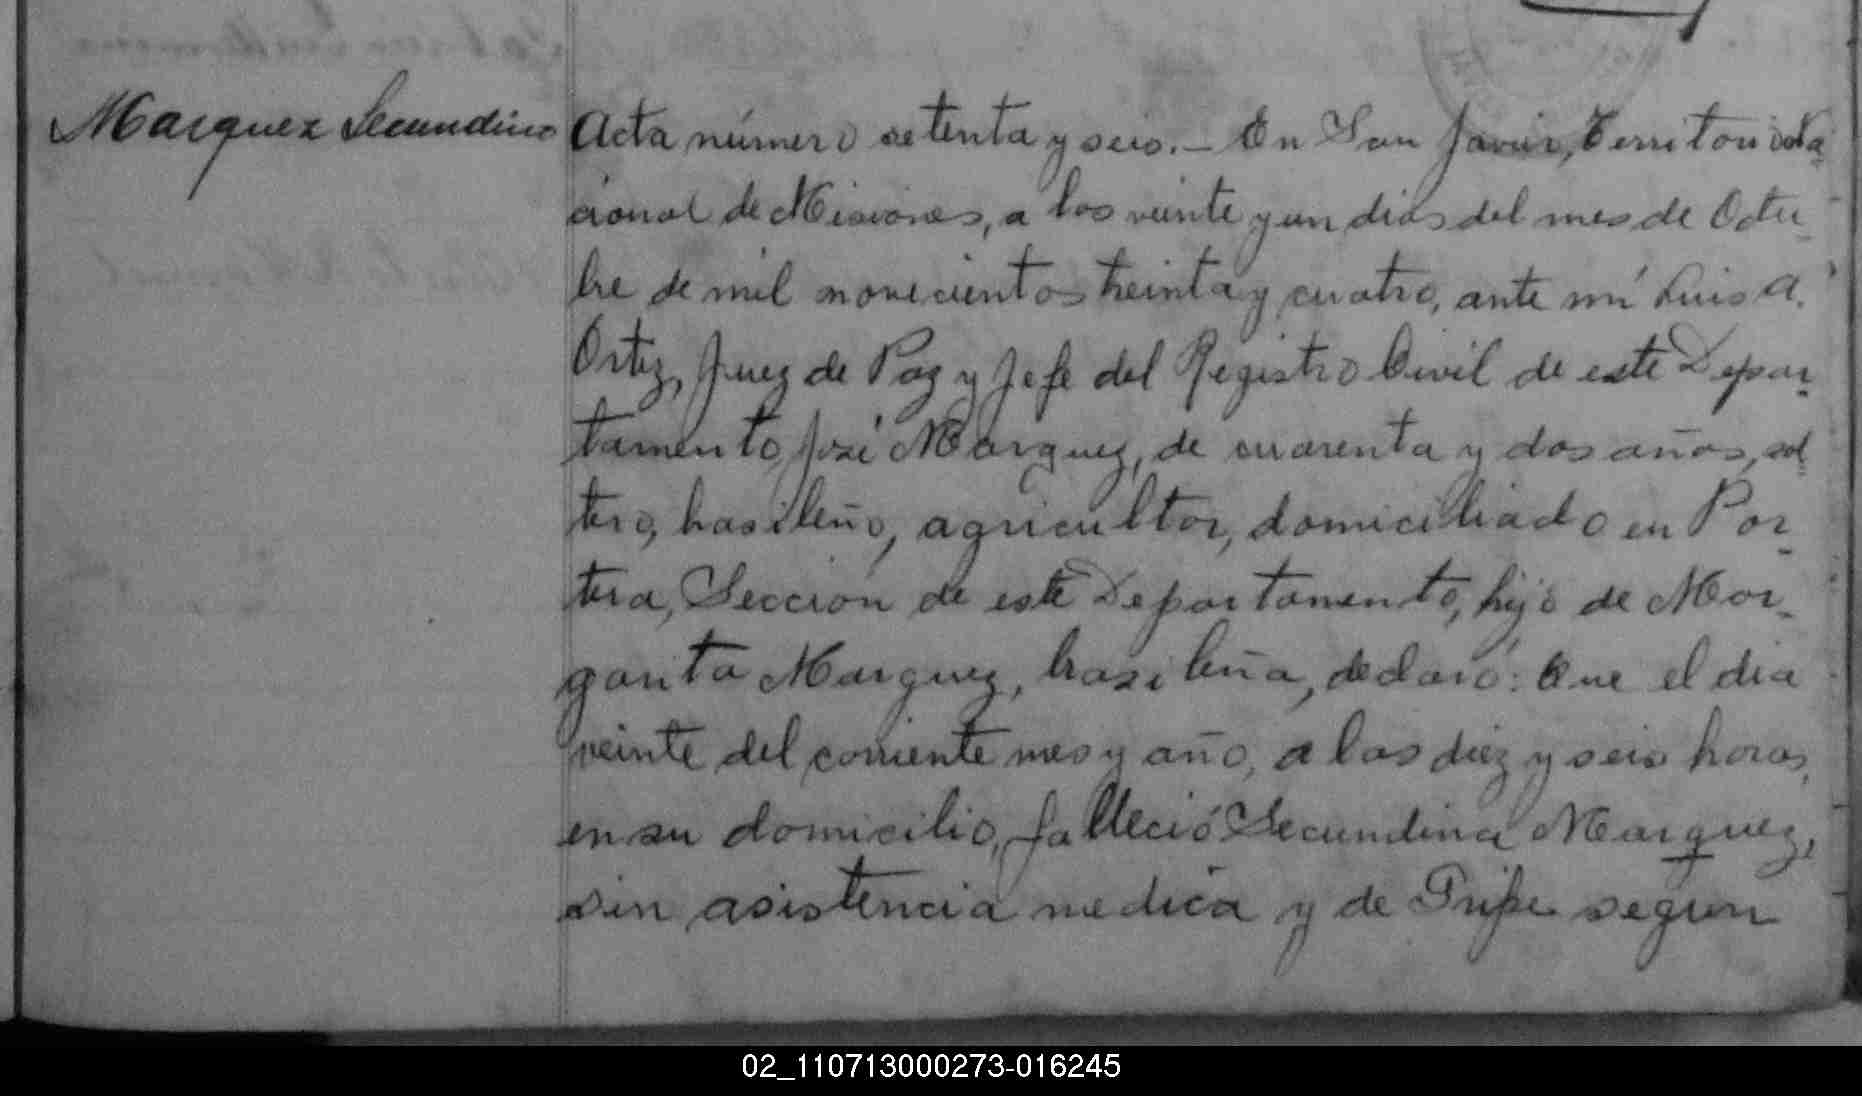 Marquez Secundino
Acta número setenta y seis.- En San Javier, Territorio Na-
cional de Misiones, a los veinte y un dias del mes de Octu-
bre de mil novecientos treinta y cuatro, ante mí Luis A.
Ortiz, Juez de Paz y Jefe del Registro Civil de este Depar-
tamento, José Marquez, de cuarenta y dos años, sol-
tero, brasileño, agricultor, domiciliado en Por-
tera, Sección de este Departamento, hijo de Mar-
garita Marquez, brasileña, declaró: Que el dia
veinte del corriente mes y año, a las diez y seis horas,
en su domicilio, falleció Secundina Marquez,
sin asistencia medica y de Gripe segun
02_110713000273-016245